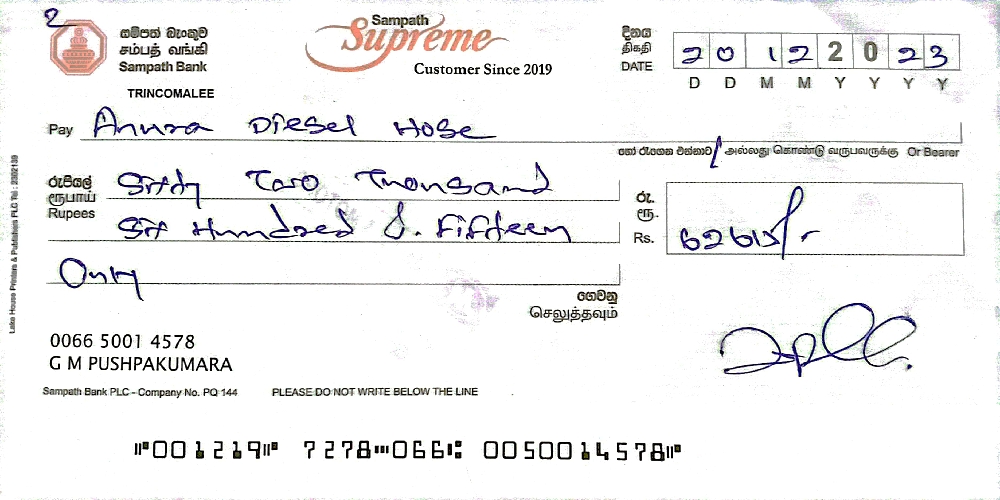 2
සම්පත් බැංකුව
சம்பத் வங்கி
Sampath Bank
TRINCOMALEE
Sampath
Supreme
Customer Since 2019
දිනය
திகதி
DATE
20 12 2023
D D M M Y Y Y Y
Pay Anura Diesel Hose
හෝ රැගෙන එන්නාට / அல்லது கொண்டு வருபவருக்கு Or Bearer
රුපියල්
ரூபாய்
Rupees
Sixty Two Thousand
Six Hundred & Fifteen
Only
රු.
ரூ.
Rs. 62615/-
ගෙවනු
செலுத்தவும்
0066 5001 4578
G M PUSHPAKUMARA
Sampath Bank PLC - Company No. PQ 144
PLEASE DO NOT WRITE BELOW THE LINE
⑈001219⑈ 7278⑉066⑆ 0050014578⑈
Lake House Printers & Publishers PLC Tel : 2302139